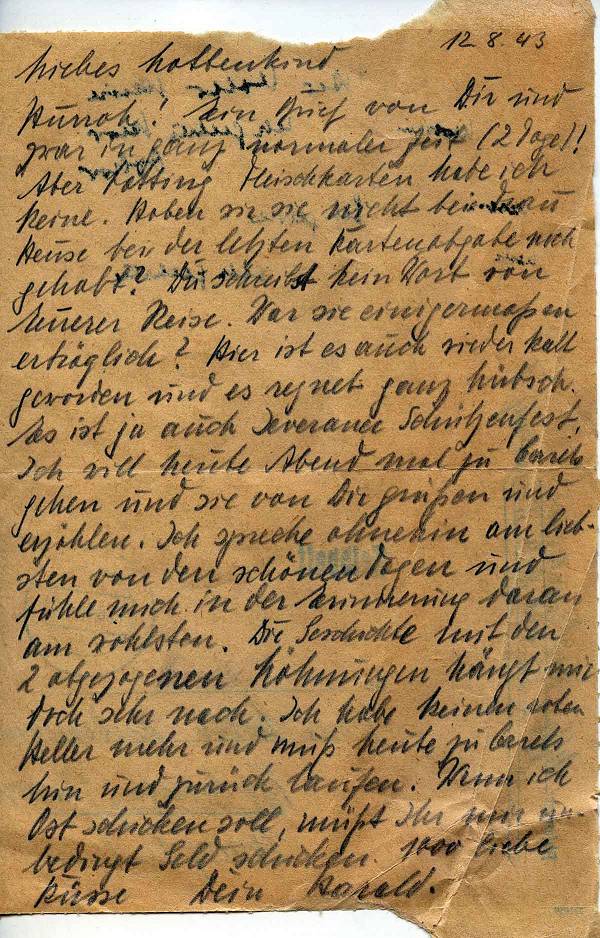 12.8.43
Liebes Lottenkind
Hurrah! Ein Brief von Dir und
zwar in ganz normaler Zeit (2 Tage)!
Aber Fleischkarten habe ich
keine. Haben wir sie nicht bei Frau
Heuse bei der letzten Kartenabgabe noch
gehabt? Du schreibst kein Wort von
Euerer Reise. War sie einigermaßen
erträglich? Hier ist es auch wieder kalt
geworden und es regnet ganz hübsch.
Es ist ja auch Schützenfest.
Ich will heute Abend mal zu Barels
gehen und sie von Dir grüßen und
erzählen. Ich spreche ohnehin am lieb-
sten von den schönen Tagen und
fühle mich in der Erinnerung daran
am wohlsten. Die Geschichte mit den
2 abgezogenen Löhnungen hängt mir
doch sehr nach. Ich habe keinen roten
Heller mehr und muß heute zu Barels
hin und zurück laufen. Wenn ich
Obst schicken soll, müßt Ihr mir un-
bedingt Geld schicken. 1000 liebe
Küsse Dein Harald.